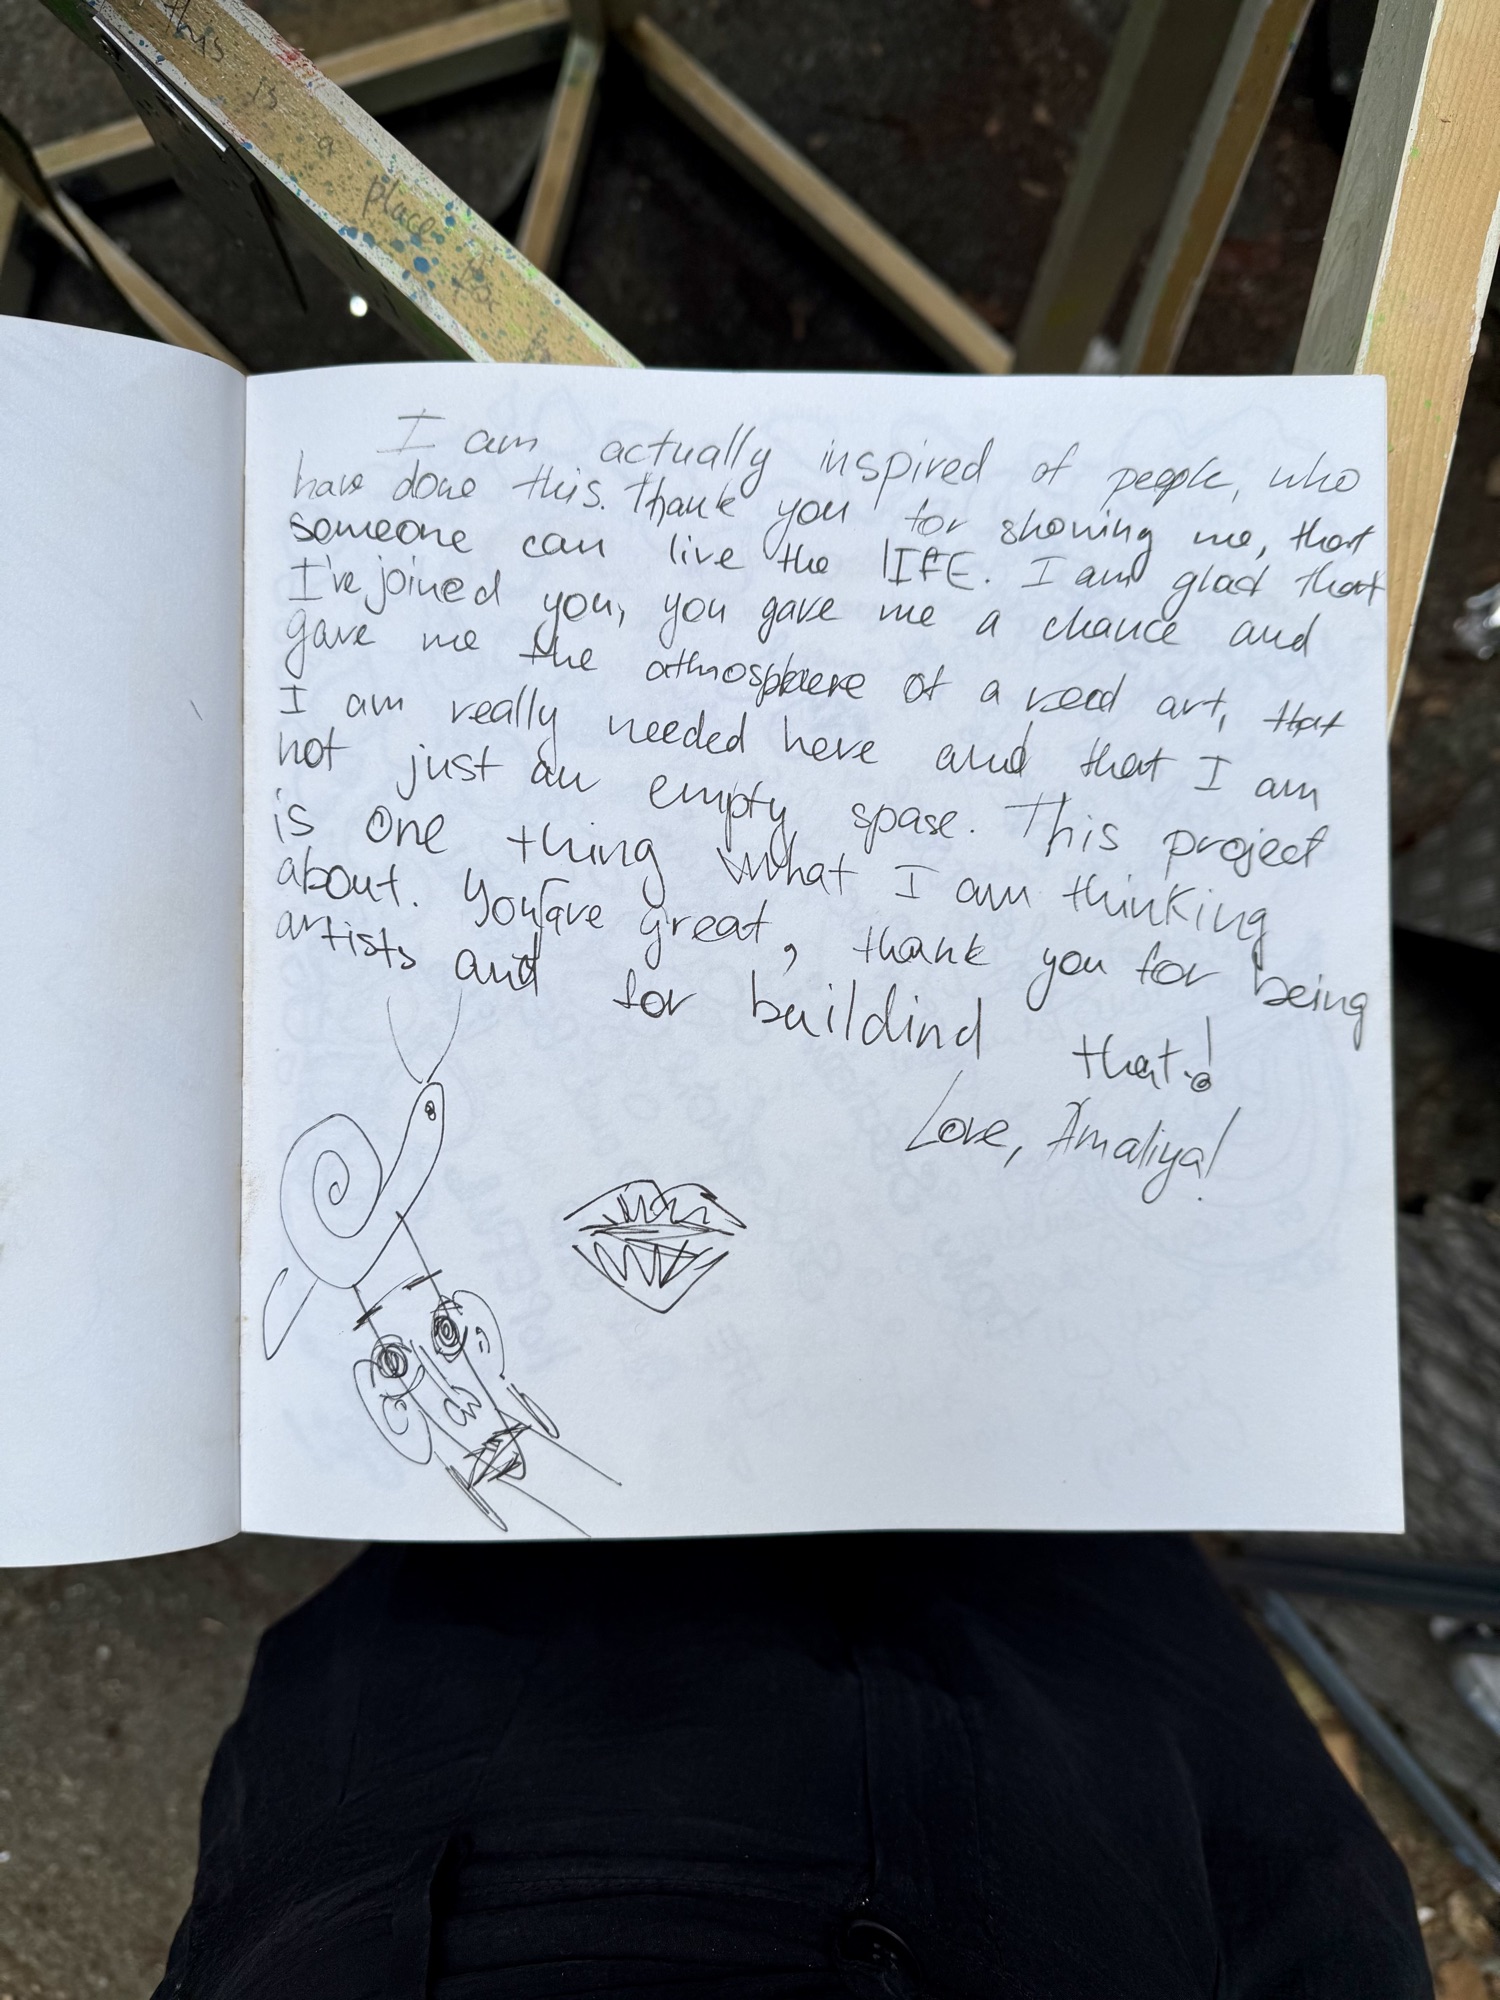 this
is
a
place
for
I am actually inspired of people, who
have done this. Thank you for showing me, that
someone can live the lIFE. I am glad that
I've joined you, you gave me a chance and
gave me the atmosphere of a real art, that
I am really needed here and that I am
not just an empty spase. This project
is one thing what I am thinking
about. You are great, thank you for being
artists and for buildind that!
Love, Amaliya!